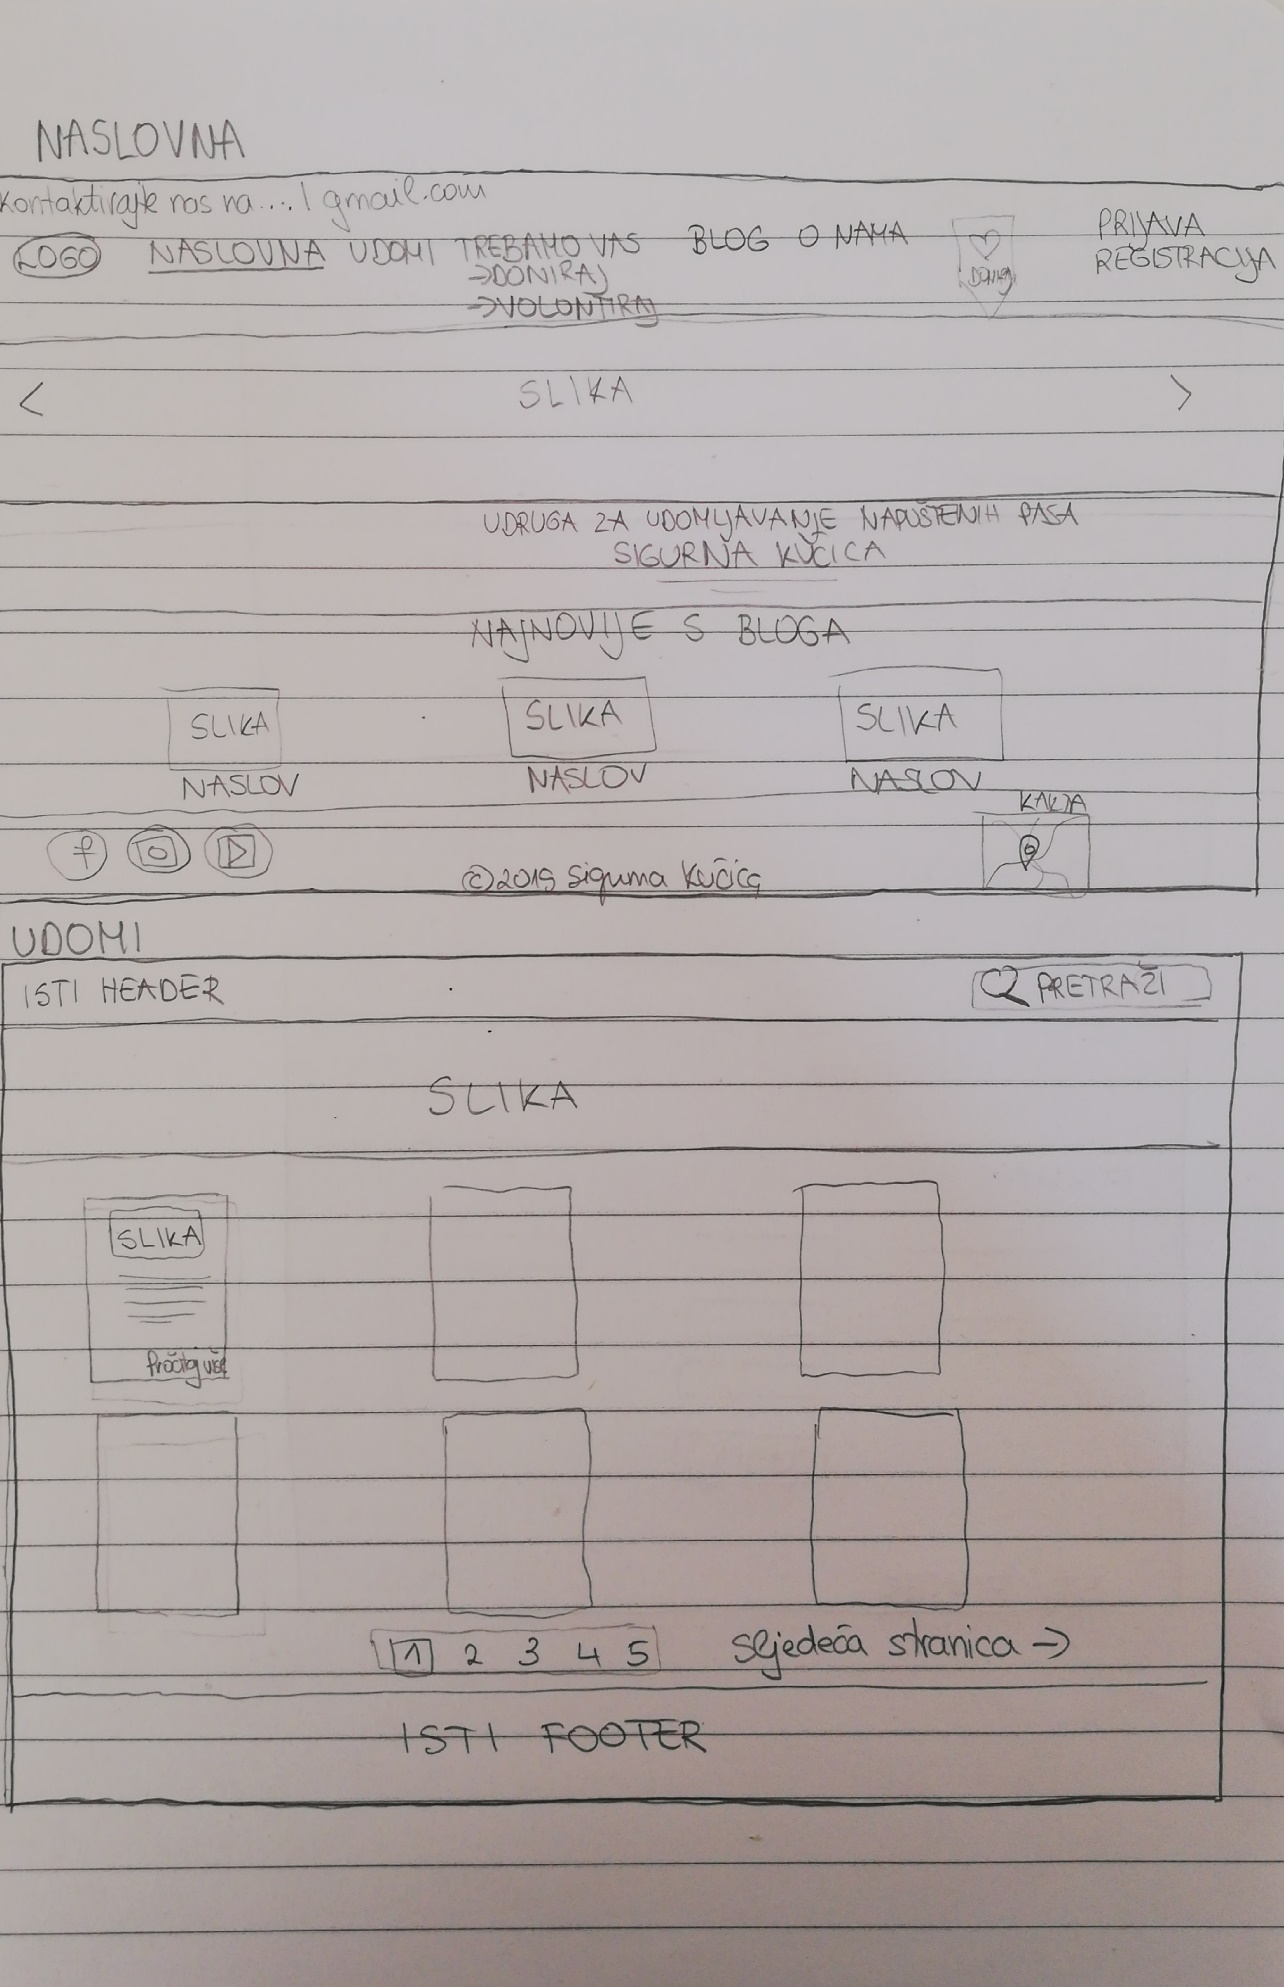 NASLOVNA
Kontaktirajte nas na... | gmail.com
LOGO NASLOVNA UDOMI TREBAMO VAS BLOG O NAMA
→DONIRAJ
→VOLONTIRAJ
DONIRAJ
PRIJAVA
REGISTRACIJA
< SLIKA >
UDRUGA ZA UDOMLJAVANJE NAPUŠTENIH PASA
SIGURNA KUĆICA
NAJNOVIJE S BLOGA
SLIKA SLIKA SLIKA
NASLOV NASLOV NASLOV
f
©2019 Sigurna Kućica
UDOMI
ISTI HEADER PRETRAŽI
SLIKA
SLIKA
Pročitaj više
1 2 3 4 5 sljedeća stranica →
ISTI FOOTER